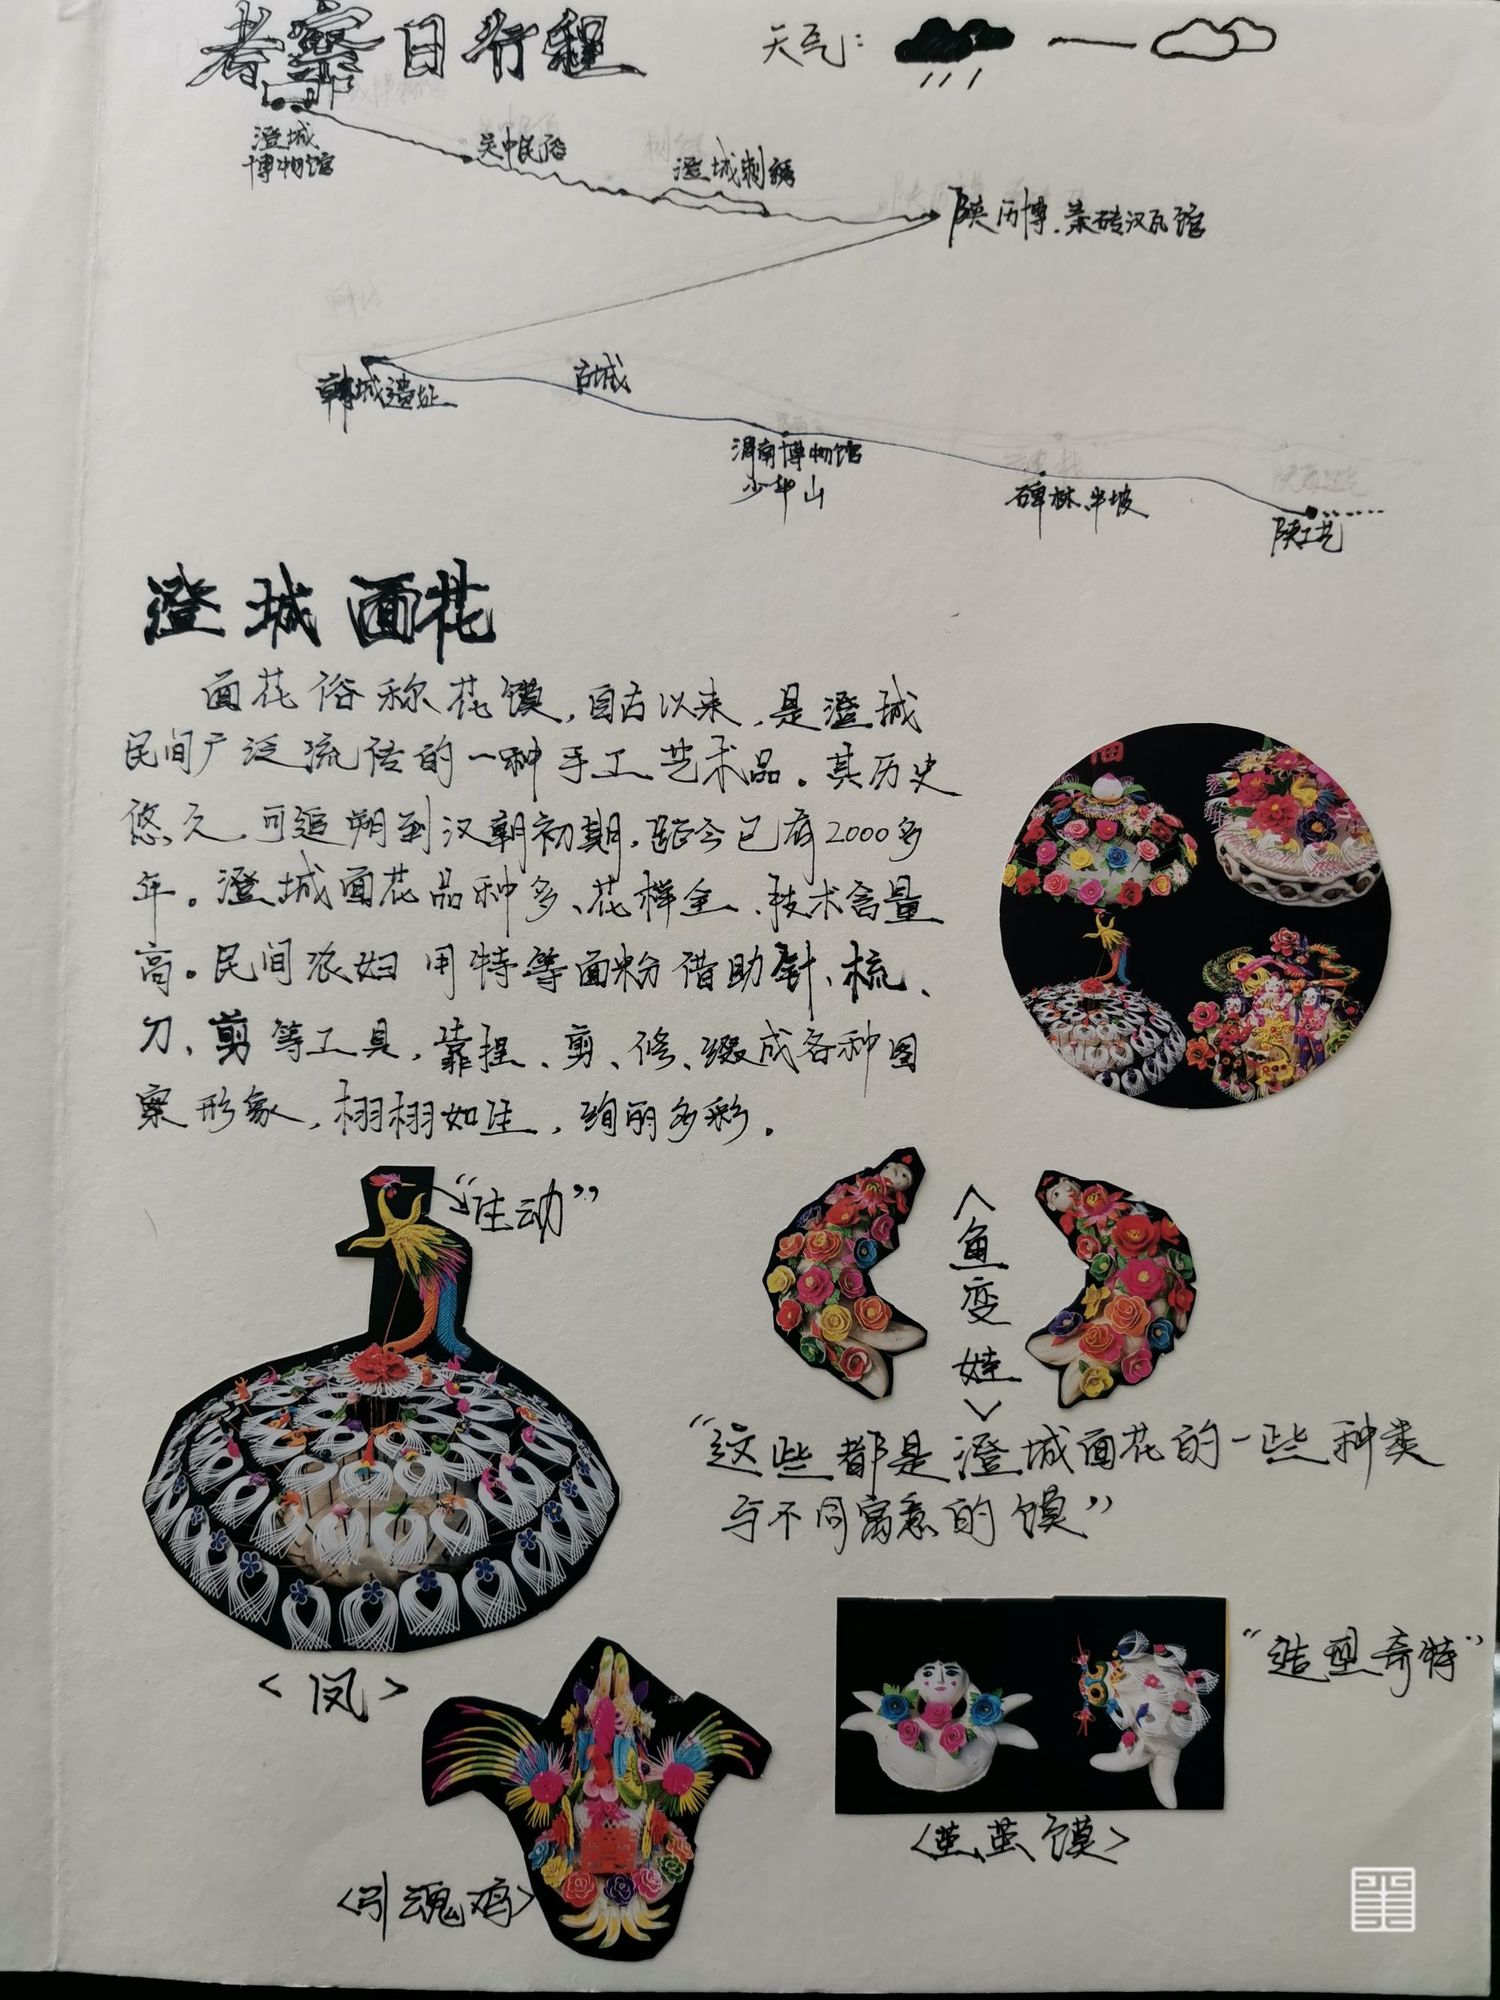 考察日行程
天气:
澄城
博物馆
吴中民俗
澄城刺绣
陕历博、秦砖汉瓦馆
韩城遗址
古城
渭南博物馆
少华山
碑林、半坡
陕工艺
澄城面花
面花俗称花馍,自古以来,是澄城
民间广泛流传的一种手工艺术品。其历史
悠久,可追朔到汉朝初期,距今已有2000多
年。澄城面花品种多、花样全、技术含量
高。民间农妇用特等面粉借助针、梳、
刀、剪等工具,靠捏、剪、修、缀成各种图
案形象,栩栩如生,绚丽多彩。
“生动”
<鱼变娃>
“这些都是澄城面花的一些种类
与不同寓意的馍”
<凤>
“造型奇特”
<茧茧馍>
<引魂鸡>